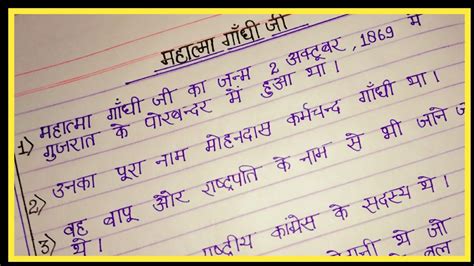 महात्मा गाँधी जी
1) महात्मा गाँधी जी का जन्म 2 अक्टूबर, 1869 में
गुजरात के पोरबन्दर में हुआ था।
2) उनका पूरा नाम मोहनदास कर्मचन्द गाँधी था।
3) वह बापू और राष्ट्रपति के नाम से भी जाने
थे।
राष्ट्रीय कांग्रेस के सदस्य थे।
थे जो